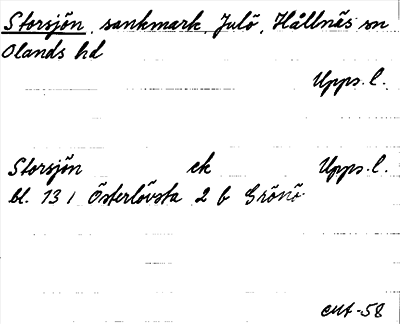 Storsjön, sankmark, Julö, Hållnäs sn
Olands hd
Upps. l.
Storsjön ek Upps. l.
bl. 131 Österlövsta 2 b Grönö
-58